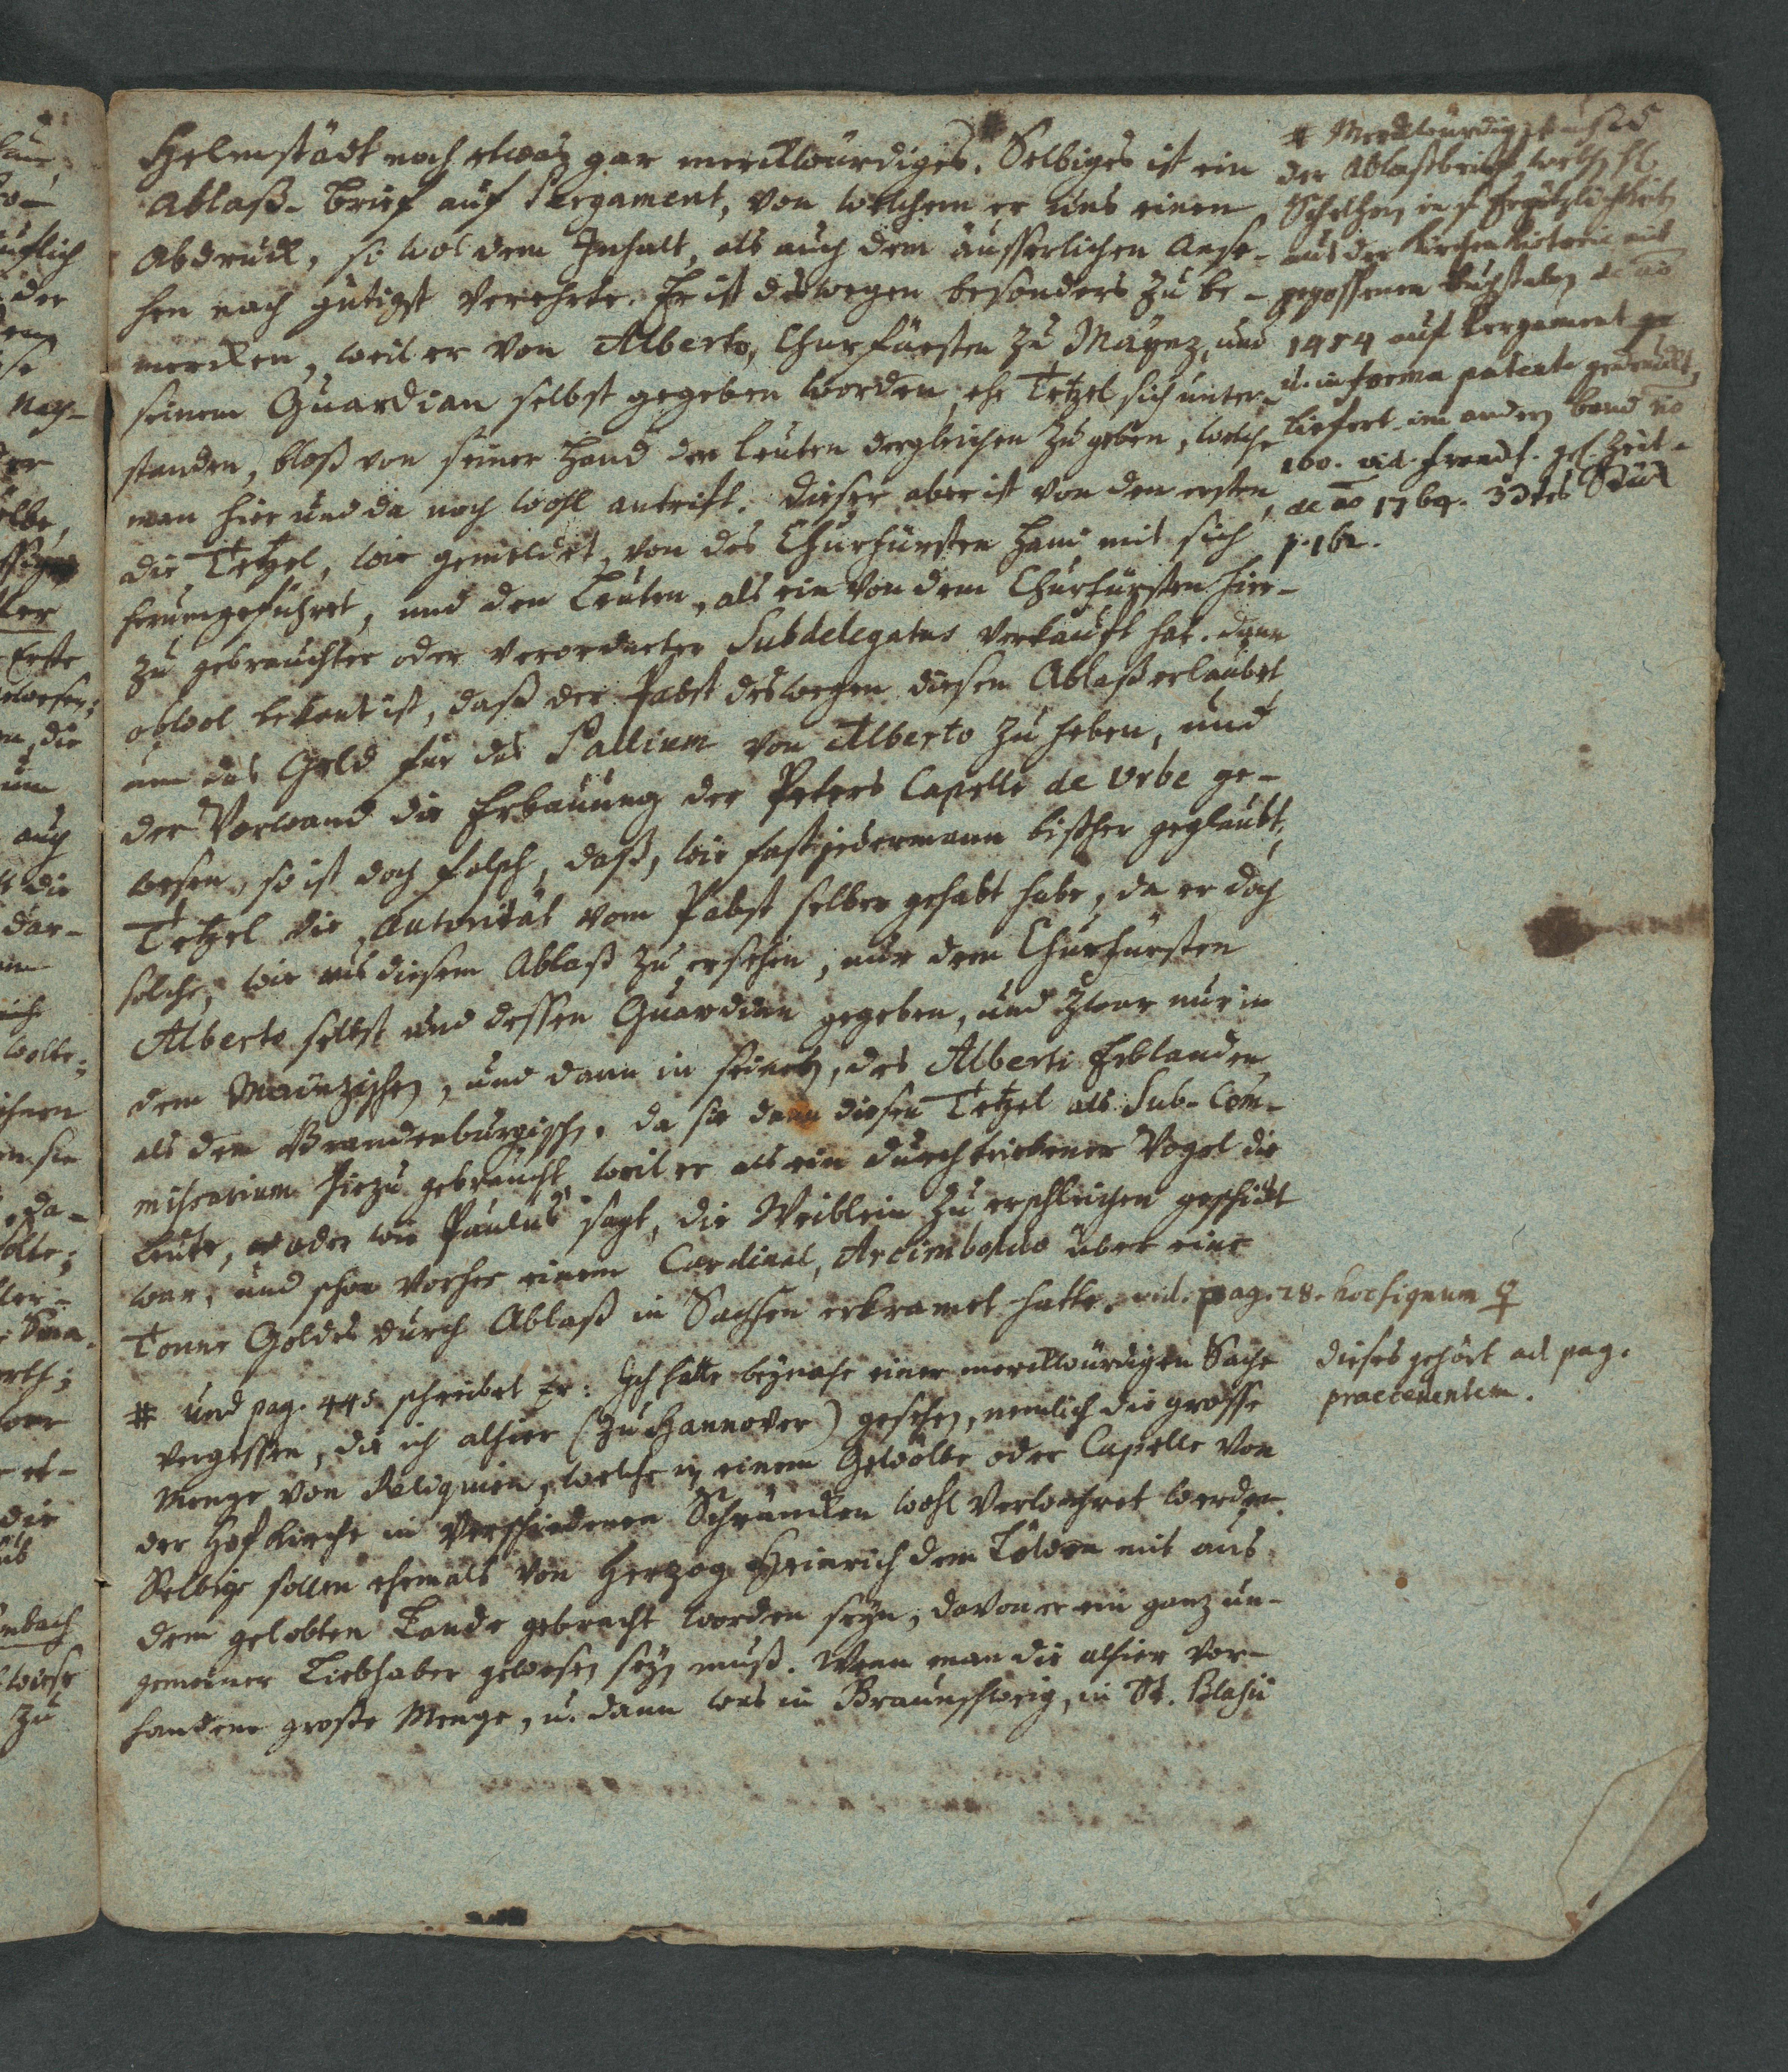 Helmstädt noch etwas gar merckwürdiges. # Selbiges ist ein
Ablaß-Brief auf Pergament, von welchem er uns einen
Abdruck, so wol dem Inhalt, als auch dem äusserlichen Anse-
hen nach gütigst verehrte. Er ist deswegen besonders zu be-
mercken, weil er von Alberto, Churfürsten zu Maynz, und
seinem Guardian selbst gegeben worden, ehe Tetzel sich unter-
standen, bloß von seiner Hand den Leuten dergleichen zu geben, welche
man hier und da noch wohl antrift. Dieser aber ist von den ersten,
die Tetzel, wie gemeldet, von des Churfürsten Hand mit sich
herumgeführet, und den Leuten, als ein von dem Churfürsten hier-
zu gebrauchter oder verordneter Subdelegatus verkauft hat. Dann
obwol bekant ist, daß der Pabst deswegen diesen Ablaß erlaubet
um das Geld für das Pallium von Alberto zu heben, und
der Vorwand die Erbauung der Peters Capelle de Urbe ge-
wesen, so ist doch falsch, daß, wie fast jedermann bißher geglaubt,
Tetzel die Autorität vom Pabst selber gehabt habe, da er doch
solche, wie aus diesem Ablaß zu ersehen, nur dem Churfürsten
Alberto selbst und dessen Guardian gegeben, und zwar nur in
dem Mainzischen, und dann in seinen, des Alberti Erblanden,
als dem Brandenburgischen. Da sie dann diesen Tetzel als Sub-Com-
missarium hiezu gebraucht, weil er als ein durchtriebener Vogel die
Leute, oder wie Paulus sagt, die Weiblein zu erschleichen geschickt
war, und schon vorher einem Cardinal, Arcimboldo über eine
Tonne Goldes durch Ablaß in Sachsen erkramet hatte. vid. pag. 28. hoc signum ♀
# und pag. 445 schreibet Er: Ich hatte beynahe einer merckwürdigen Sache
vergessen, die ich alhier (zu Hannover) gesehen, nemlich die grosse
Menge von Reliquien, welche in einem Gewölbe oder Capelle von
der Hofkirche in verschiedenen Schräncken wohl verwahret werden.
Selbige sollen ehemals von Herzog Heinrich dem Löwen mit aus
dem gelobten Lande gebracht worden seyn, davon er ein ganz un-
gemeiner Liebhaber gewesen seyn muß. Wenn man die alhier vor-
handene große Menge, u. dann was in Braunschweig, in St. Blasii
# Merckwürdig ist auch
der Ablaßbrief, welchen
Schelhorn in s. Ergötzlichkeiten
aus der Kirchenhistorie mit
gegossenen Buchstaben de ao
1454 auf Pergament
u. in forma patente gedruckt,
liefert im andern Band no
160. vid. gel. Zeit-
de ao 1764. 33tes Stück
p. 162.
dieses gehört ad pag.
praecedentem.